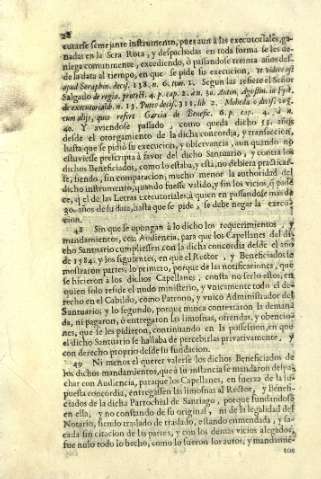 28
cutarse semejante instrumento, pues aun à las executoriales, ga-
nadas en la Scra Rota, y despachadas en toda forma se les de-
niega comunmente, excediendo, ò passandose treinta años des-
de la data al tiempo, en que se pide su execucion,
apud Seraphin. decis. 138. n. 6. tom. 2. Segun las refiere el Señor
Salgado de regia protect. 4. p. cap. 2. an. 30. Anton. Agustin. in
de executorialib. n. 13. Puteo decis. 311. lib. 2.
tum aliis, quos refert Garcia de Benefic. 6. p. cap. 4.
40. Y aviendose passado, como queda dicho 55. años
desde el otorgamiento de la dicha concordia, y transaccion,
hasta que se pidiò su execucion, y observancia, aun quando no
estuviesse prescripta à favor del dicho Santuario, y contra los
dichos Beneficiados, como lo estaba, y està, no debiera practicar-
se, siendo, sin comparacion, mucho menor la authoridad del
dicho instrumento, quando fuesse valido, y sin los vicios, q pade-
ce, q el de las Letras executoriales, à quien en passandose mas de
30. años de su data, hasta que se pide, se debe negar la execu-
cion.
48 Sin que se opongan à lo dicho los requerimientos, y
mandamientos, con Audiencia, para que los Capellanes del di-
cho Santuario cumpliessen con la dicha concordia desde el año
de 1584. y los siguientes, en que el Rector, y Beneficiados le
mostraron partes: lo primero, porque de las notificaciones, que
se hizieron à los dichos Capellanes, consta no serlo estos, en
quien solo reside el nudo ministerio, y vnicamente todo el de-
recho en el Cabildo, como Patrono, y vnico Administrador del
Santuario; y lo segundo, porque nunca contextaron la deman-
da, ni pagaron, ò entregaron las limosnas, ofrendas, y obencio-
nes, que se les pidieron, continuando en la possession, en que
el dicho Santuario se hallaba de percebirlas privativamente, y
con derecho proprio desde su fundacion.
49 Ni menos el querer valerse los dichos Beneficiados de
los dichos mandamientos, que à su instancia se mandaron despa-
char con Audiencia, para que los Capellanes, en fuerza de la su-
puesta concordia, entregassen las limosnas al Rector, y Benefi-
ciados de la dicha Parrochial de Santiago, porque fundandose
en ella, y no constando de su original, ni de la legalidad del
Notario, siendo traslado de traslado, estando enmendada, y sa-
cada sin citacion de las partes, y con los demàs vicios alegados,
fue nulo todo lo hecho, como lo fueron los autos, y mandamie-
tos